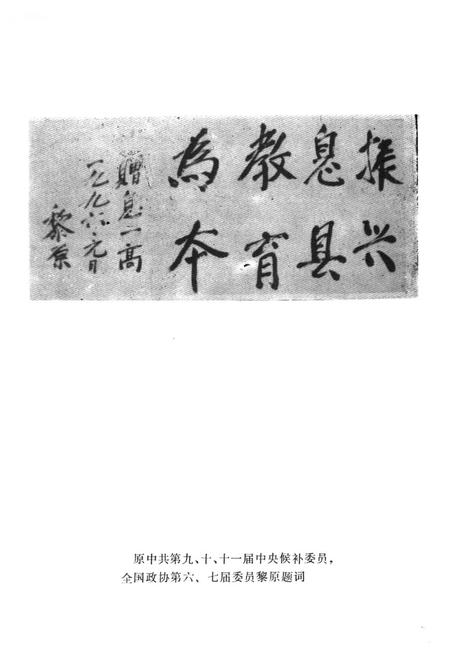 振兴
息县
教育
为本
赠息一高
一九九六.元月
黎原
原中共第九、十、十一届中央候补委员，
全国政协第六、七届委员黎原题词